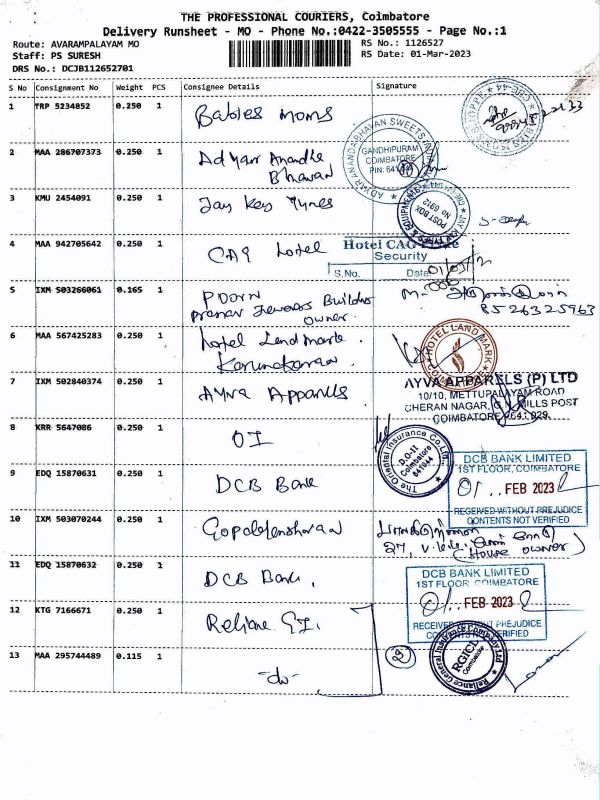 THE PROFESSIONAL COURIERS, Coimbatore
Delivery Runsheet - MO - Phone No.:0422-3505555 - Page No.:1
Route: AVARAMPALAYAM MO
RS No.: 1126527
Staff: PS SURESH
RS Date: 01-Mar-2023
DRS No.: DCJB112652701
S No Consignment No Weight PCS Consignee Details Signature
1 TRP 5234852 0.250 1 Babies moms
2 MAA 286707373 0.250 1 Adyar Anandha
Bhavan
ADYAR ANANDHABHAVAN SWEETS
GANDHIPURAM
COIMBATORE
3 KMU 2454091 0.250 1 Jay Key Tynes
POST BOX
No 6912
4 MAA 942705642 0.250 1 CAG hotel
Security
S.No. Date
5 IXM 503266061 0.165 1
Pranav Jewears Builders
owner.
8526325963
6 MAA 567425283 0.250 1 hotel Landmark.
Karunakaran
HOTEL LAND MARK
7 IXM 502840374 0.250 1 Ayva Apparels
AYVA APPARELS (P) LTD
10/10, METTUPALAYAM ROAD
CHERAN NAGAR, MILLS POST
COIMBATORE
8 KRR 5647086 0.250 1 OI
The Oriental Insurance Co.Ltd.
D.O-II
Coimbatore
641044
9 EDQ 15870631 0.250 1 DCB Bank
DCB BANK LIMITED
1ST FLOOR, COIMBATORE
01.. FEB 2023
RECEIVED WITHOUT PREJUDICE
CONTENTS NOT VERIFIED
10 IXM 503070244 0.250 1
27,
(House owner)
11 EDQ 15870632 0.250 1 DCB Bank,
DCB BANK LIMITED
1ST FLOOR, COIMBATORE
01.. FEB 2023
RECEIVED WITHOUT PREJUDICE
12 KTG 7166671 0.250 1 Reliane GI.
Reliance General Insurance Company Ltd
RGICL
Coimbatore
13 MAA 295744489 0.115 1 -do-
29